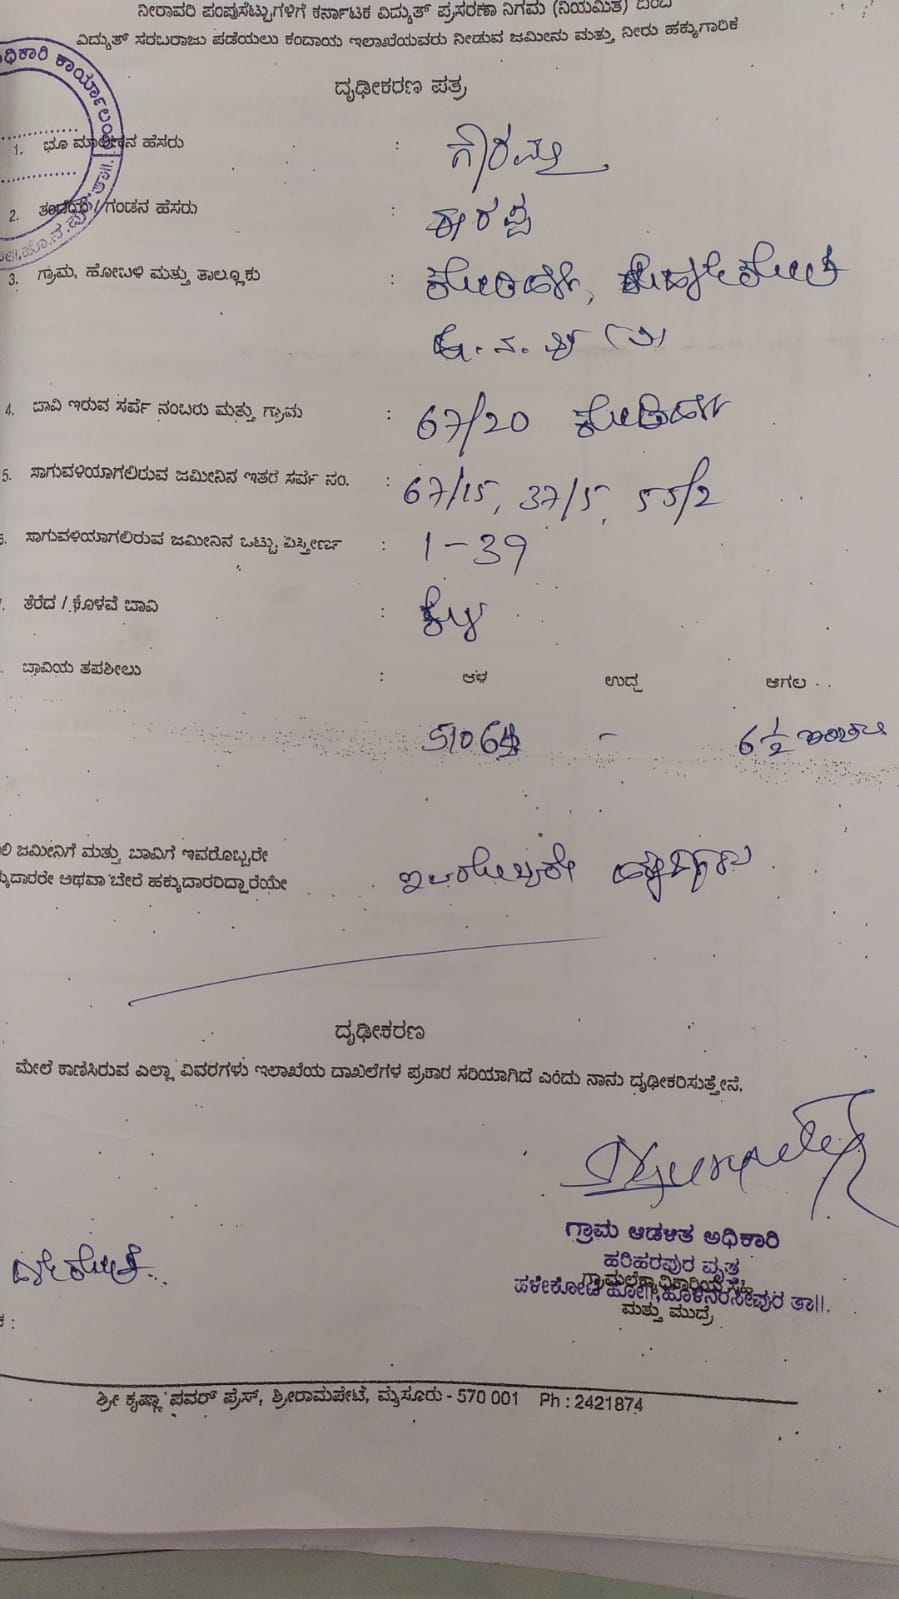 ನೀರಾವರಿ ಪಂಪುಸೆಟ್ಟುಗಳಿಗೆ ಕರ್ನಾಟಕ ವಿದ್ಯುತ್ ಪ್ರಸರಣಾ ನಿಗಮ (ನಿಯಮಿತ) ದಿಂದ
ವಿದ್ಯುತ್ ಸರಬರಾಜು ಪಡೆಯಲು ಕಂದಾಯ ಇಲಾಖೆಯವರು ನೀಡುವ ಜಮೀನು ಮತ್ತು ನೀರು ಹಕ್ಕುಗಾರಿಕೆ
ದೃಢೀಕರಣ ಪತ್ರ
1. ಭೂ ಮಾಲೀಕನ ಹೆಸರು : ಗೌರಮ್ಮ
2. ತಂದೆಯ / ಗಂಡನ ಹೆಸರು : ಈರಪ್ಪ
3. ಗ್ರಾಮ, ಹೋಬಳಿ ಮತ್ತು ತಾಲ್ಲೂಕು :
4. ಬಾವಿ ಇರುವ ಸರ್ವೆ ನಂಬರು ಮತ್ತು ಗ್ರಾಮ : 67/20
5. ಸಾಗುವಳಿಯಾಗಲಿರುವ ಜಮೀನಿನ ಇತರೆ ಸರ್ವೆ ನಂ. : 67/15, 37/5, 55/2
ಸಾಗುವಳಿಯಾಗಲಿರುವ ಜಮೀನಿನ ಒಟ್ಟು ವಿಸ್ತೀರ್ಣ : 1-39
ತೆರೆದ / ಕೊಳವೆ ಬಾವಿ :
ಬಾವಿಯ ತಪಶೀಲು : ಆಳ ಉದ್ದ ಆಗಲ
510 - 6 1/2
ಜಮೀನಿಗೆ ಮತ್ತು ಬಾವಿಗೆ ಇವರೊಬ್ಬರೇ
ಅಥವಾ ಬೇರೆ ಹಕ್ಕುದಾರರಿದ್ದಾರೆಯೇ ಇವರೊಬ್ಬರೇ
ದೃಢೀಕರಣ
ಮೇಲೆ ಕಾಣಿಸಿರುವ ಎಲ್ಲಾ ವಿವರಗಳು ಇಲಾಖೆಯ ದಾಖಲೆಗಳ ಪ್ರಕಾರ ಸರಿಯಾಗಿದೆ ಎಂದು ನಾನು ದೃಢೀಕರಿಸುತ್ತೇನೆ.
ಗ್ರಾಮ ಆಡಳಿತ ಅಧಿಕಾರಿ
ಹರಿಹರಪುರ ವೃತ್ತ
ಹಳೇಕೋಟೆ ಹೋ||, ಹೊಳೆನರಸೀಪುರ ತಾ||.
ಮತ್ತು ಮುದ್ರೆ
ಶ್ರೀ ಕೃಷ್ಣಾ ಪವರ್ ಪ್ರೆಸ್, ಶ್ರೀರಾಮಪೇಟೆ, ಮೈಸೂರು - 570 001 Ph : 2421874